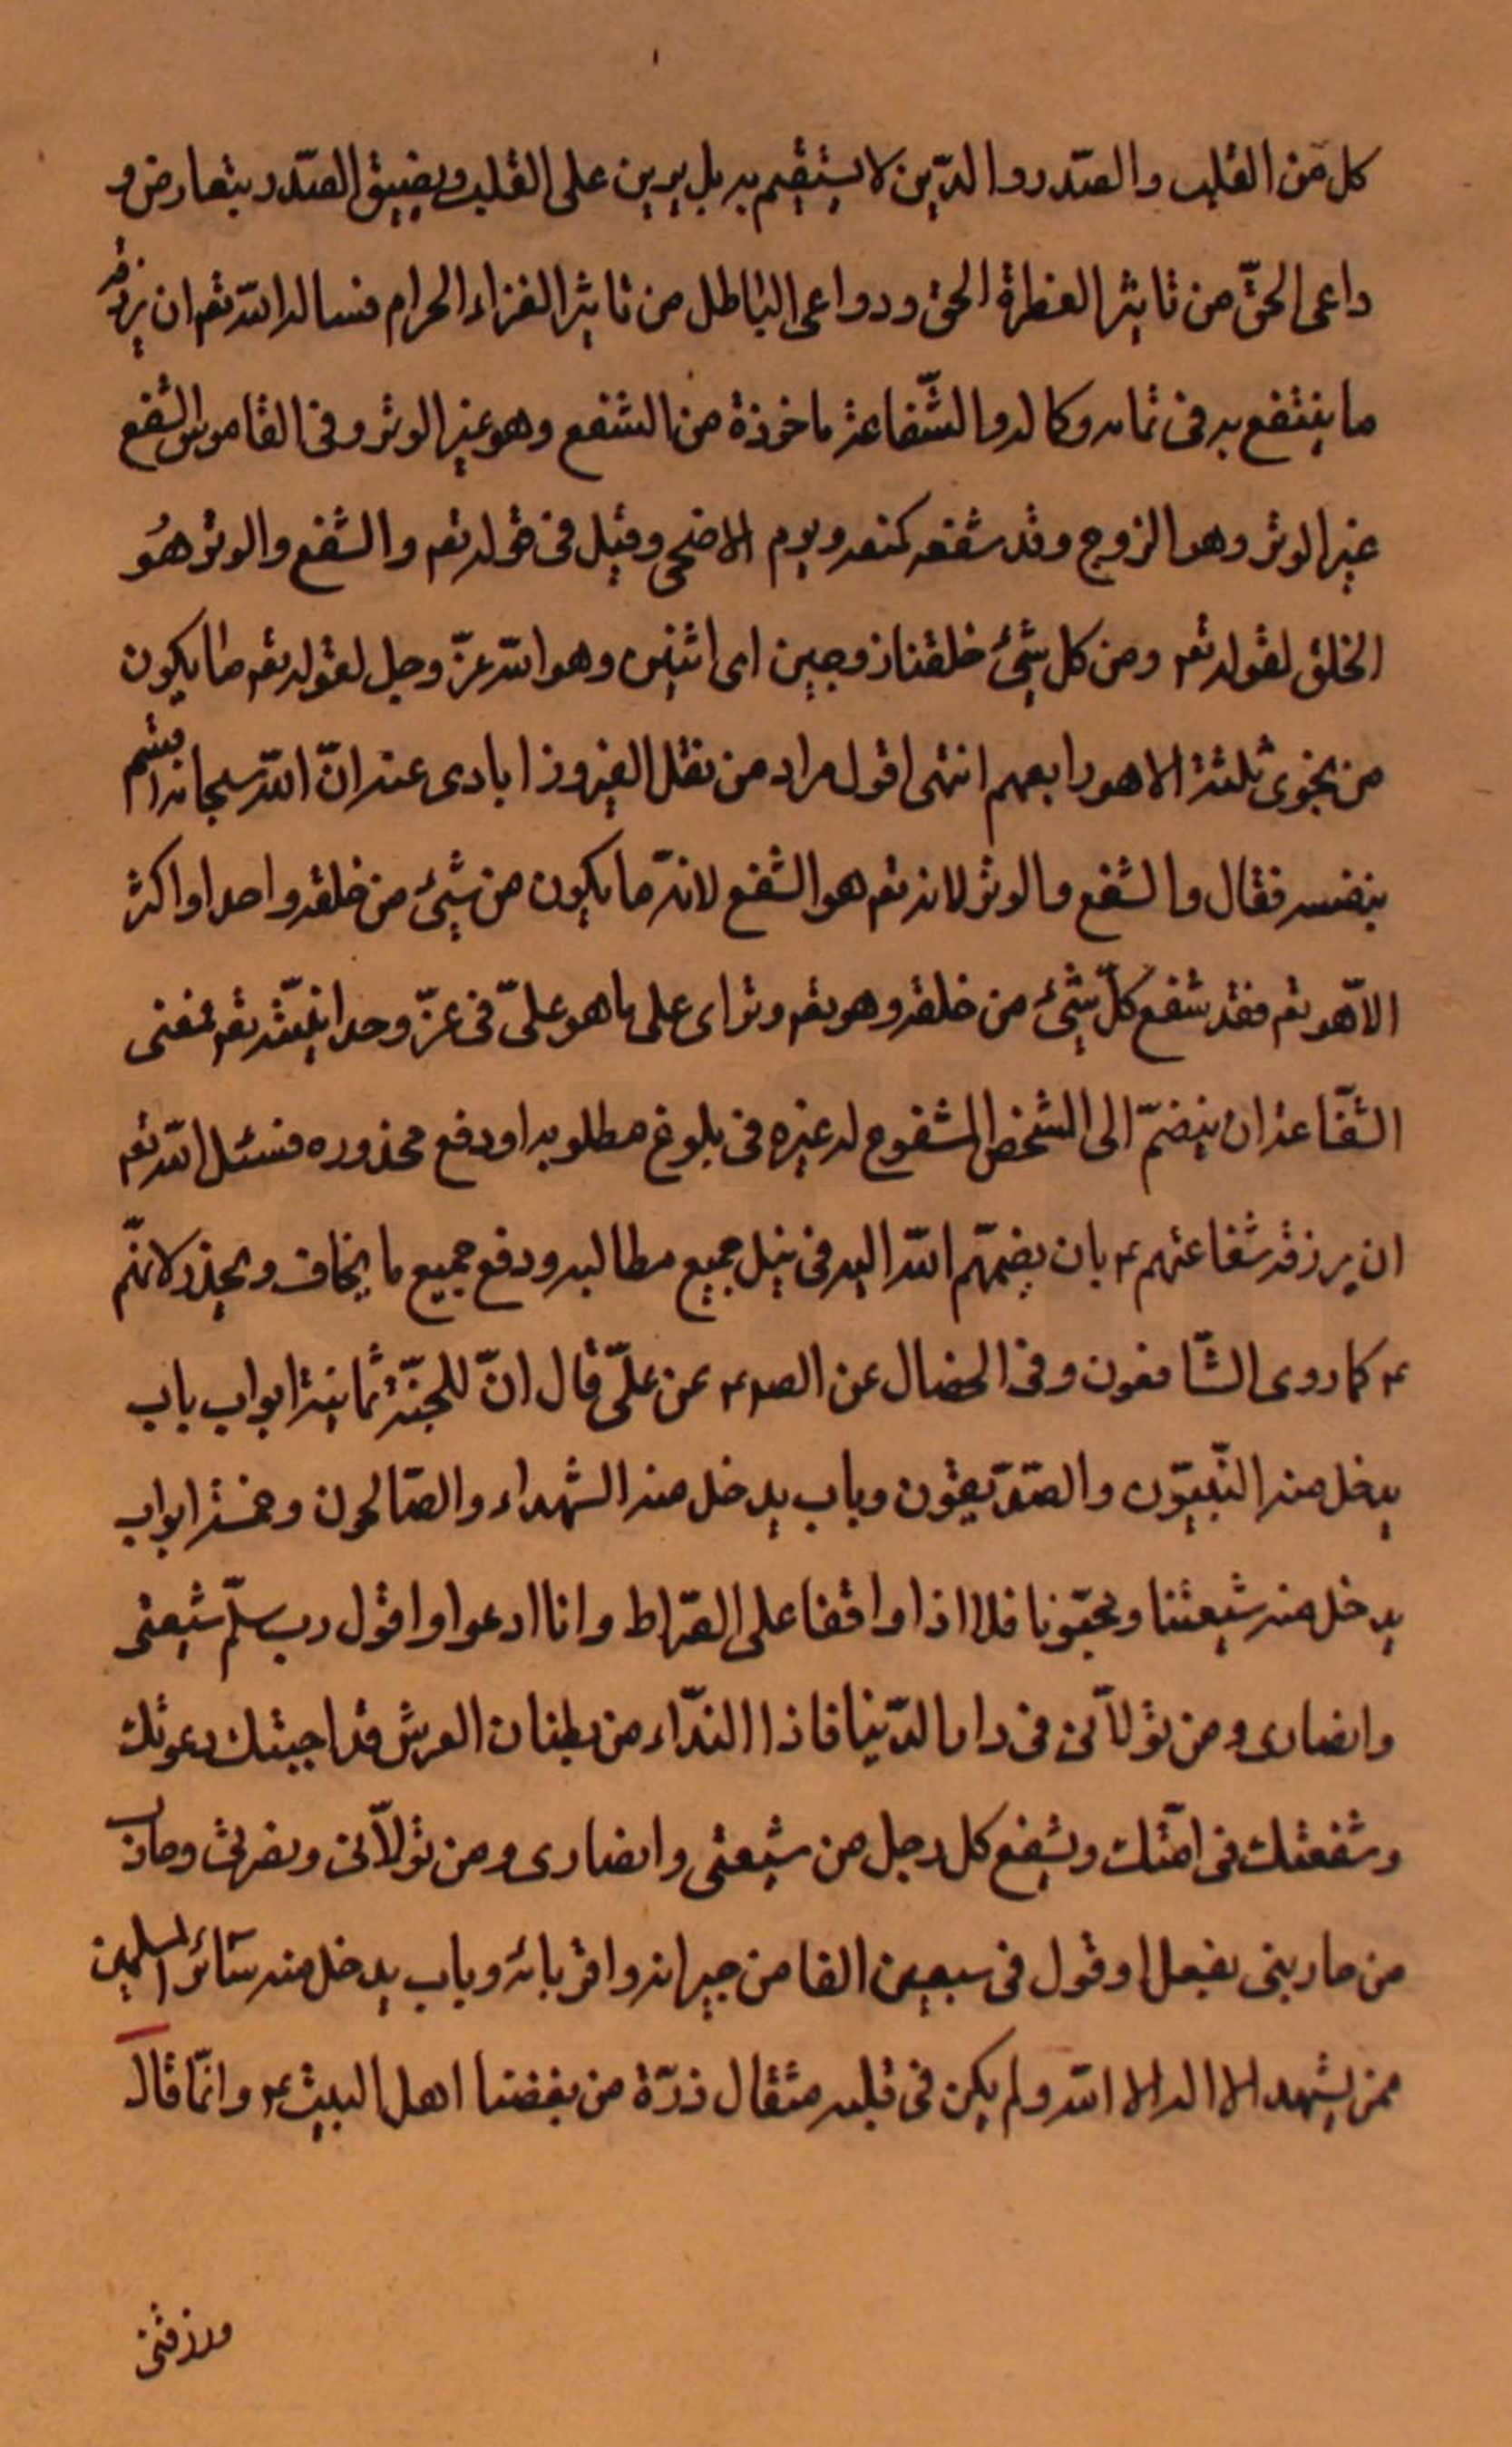 كل من القلب والصّدر والدّين لا يستقيم به بل يرين على القلب ويضيق الصّدر بتعارض و
داعى الحقّ من تاثير الفطرة الحق ودواعى الباطل من تاثير الغزاء الحرام فساله الله تعم ان يرزقه
ما ينتفع به فى تمامه وكاله والشّفاعة ماخوذة من الشفع وهو غير الوتر وفى القاموس الشفع
غير الوتر وهو الزوج وقد شفعه كمنعه ويوم الاضحى وقيل فى قوله تعم والشفع والوتر هُو
الخلق لقوله تعم ومن كل شيئ خلقنا زوجين اى اثنين وهو الله عزّ وجل لقوله تعم ما يكون
من نجوى ثلثة الا هو رابعهم انتهى اقول مراد من نقل الفيروز ابادى عنه انّ الله سبحانه اقسم
بنفسه فقال والشفع والوتر لانه تعم هو الشفع لانّه ما يكون من شيئ من خلقه واحد او اكثر
الاّ هو تعم فقد شفع كلّ شيئ من خلقه وهو تعم وتر اى على ما هو علىّ فى عزّ وحدانيّته تعم فمعنى
الشّفاعة ان ينضمّ الى الشخص المشفوع له غيره فى بلوغ مطلوبه او دفع محذوره فسئل الله تعم
ان يرزقه شفاعتهم ع بان يضمّهم الله اليه فى نيل جميع مطالبه ودفع جميع ما يخاف ويحذر لانهّم
ع كما روى الشّافعون وفى الخصال عن الصم ع عن علىّ قال انّ للجنّة ثمانية ابواب باب
يدخل منه النّبيّون والصّدّيقون وباب يدخل منه الشهداء والصّالحون وخمسة ابواب
يدخل منه شيعتنا ومحبّونا فلا اذا واقفا على الصّراط وانا ادعوا واقول رب سلّم شيعتى
وانصارى ومن تولاّنى فى دار الدّنيا فاذا النّداء من بطنان العرش قد اجبتك دعوتك
وشفعتك فى امّتك ويشفع كل رجل من شيعتى وانصارى ومن تولاّنى ونصرنى وحارب
من حاربنى بفعل او قول فى سبعين الفا من جيرانه واقربائه وباب يدخل منه سآئر المسلمين
ممن يشهد الا اله الا الله ولم يكن فى قلبه مثقال ذرّة من بغضنا اهل البيت ع وانّما قال
ورزقنى